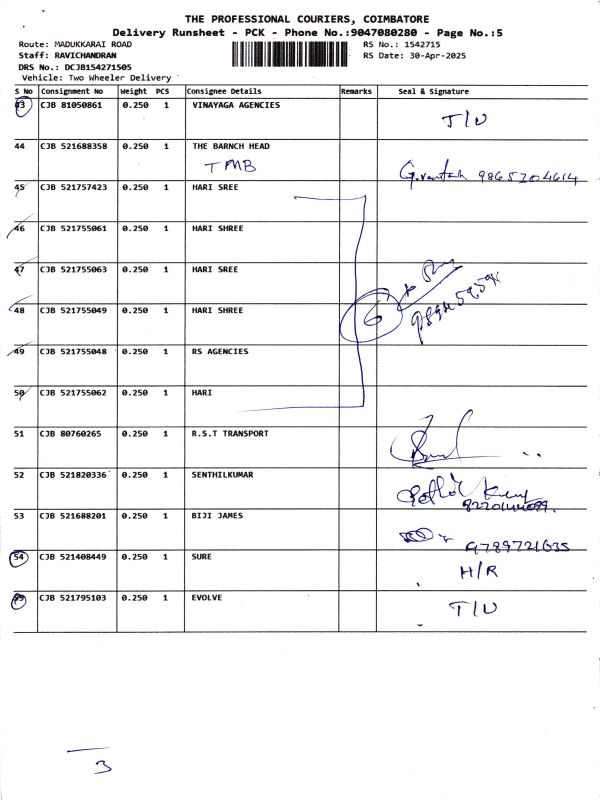 THE PROFESSIONAL COURIERS, COIMBATORE
Delivery Runsheet - PCK - Phone No.:9047080280 - Page No.:5
Route: MADUKKARAI ROAD RS No.: 1542715
Staff: RAVICHANDRAN RS Date: 30-Apr-2025
DRS No.: DCJB154271505
Vehicle: Two Wheeler Delivery
S No Consignment No Weight PCS Consignee Details Remarks Seal & Signature
43 CJB 81050861 0.250 1 VINAYAGA AGENCIES
T/U
44 CJB 521688358 0.250 1 THE BARNCH HEAD
TMB 9865204614
45 CJB 521757423 0.250 1 HARI SREE
46 CJB 521755061 0.250 1 HARI SHREE
47 CJB 521755063 0.250 1 HARI SREE
48 CJB 521755049 0.250 1 HARI SHREE
6
49 CJB 521755048 0.250 1 RS AGENCIES
50 CJB 521755062 0.250 1 HARI
51 CJB 80760265 0.250 1 R.S.T TRANSPORT
52 CJB 521820336 0.250 1 SENTHILKUMAR
53 CJB 521688201 0.250 1 BIJI JAMES
9789721635
54 CJB 521408449 0.250 1 SURE
H/R
55 CJB 521795103 0.250 1 EVOLVE
T/U
3